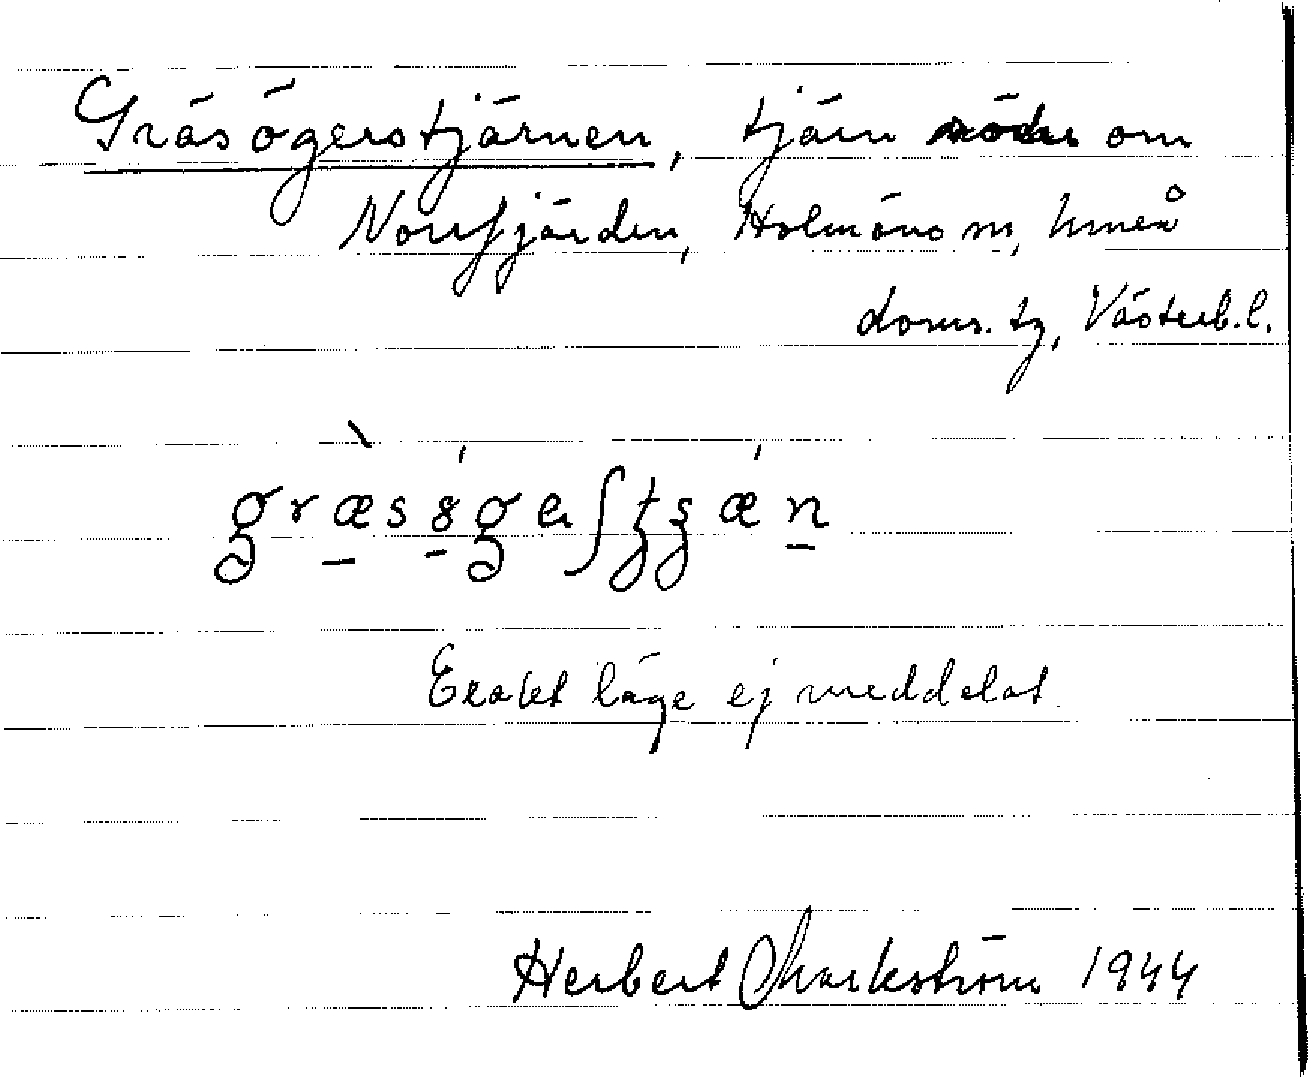 Gräsögerstjärnen, tjärn söder om
Norrfjärden, Holmöns sn, Umeå
doms. tg, Västerb. l.
Exakt läge ej meddelat
Herbert Markström 1944